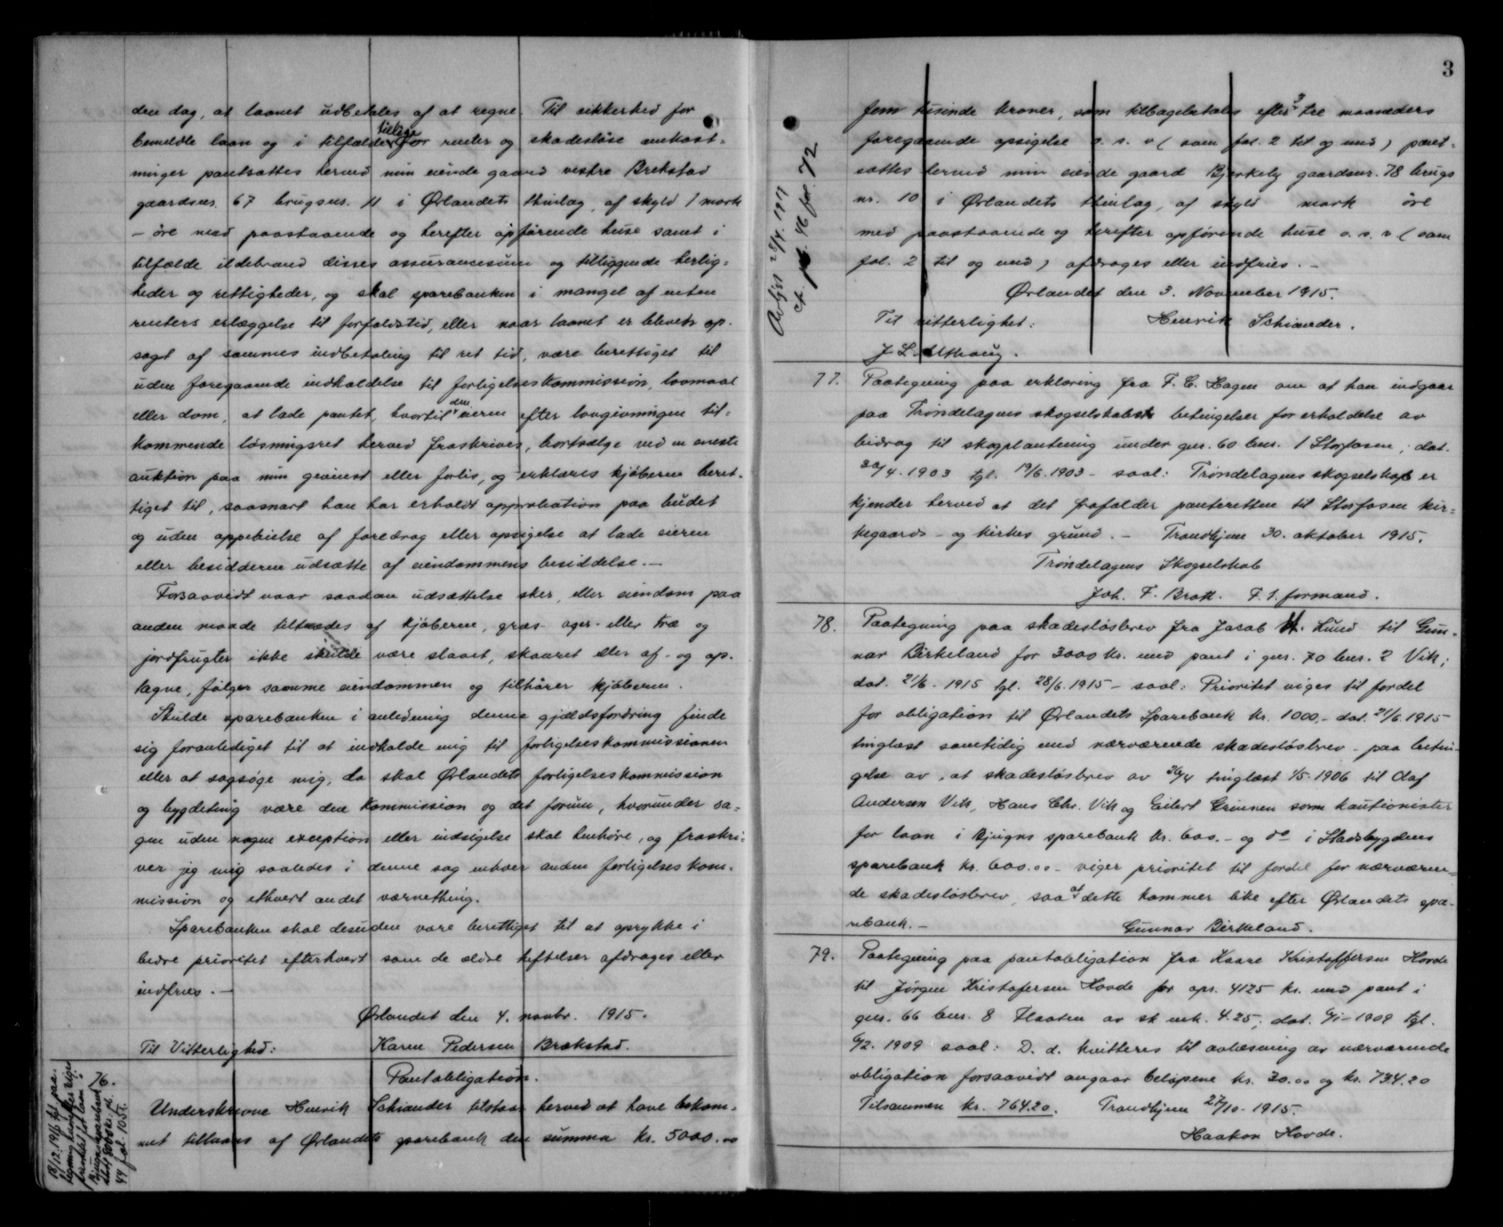 den dag, at laanet udbetales af at regne. Til sikkerhed for
bemeldte laan og i tilfælde tillige for renter og skadesløse omkost-
ninger pantsættes herved min eiende gaard vestre Brekstad
gaardsnr. 67 brugsnr. 11 i Ørlandets thinlag, af skyld 1 mark
- øre med paastaaende og herefter opførende huse samt i
tilfælde ildebrand disses assurancesum og tilliggende herlig-
heder og rettigheder, og skal sparebanken i mangel af enten
renters erlæggelse til forfaldstid, eller naar laanet er blevet op-
sagt af sammes indbetaling til ret tid, være berettiget til
uden foregaaende indkaldelse til forligelseskommission, lovmaal
eller dom, at lade pantet, hvortil den eieren efter lovgivningen til-
kommende løsningsret herved fraskrives, bortsælge ved en eneste
auktion paa min gevinst eller forlis, og erklæres kjøberen beret-
tiget til, saasnart han har erholdt approbation paa budet
og uden oppebielse af foredrag eller opsigelse at lade eieren
eller besidderen udsætte af eiendommens besiddelse.—
Forsaavidt naar saadan udsættelse sker, eller eiendom paa
anden maade tiltrædes af kjøberen, græs- ager- eller træ og
jordfrugter ikke skulde være slaaet, skaaret eller af- og op-
tagne, følger samme eiendommen og tilhører kjøberen.
Skulde sparebanken i anledning denne gjældsfordring finde
sig foranlediget til at indkalde mig til forligelseskommissionen
eller at sagsøge mig, da skal Ørlandets forligelseskommission
og bygdeting være den kommission og det forum, hvorunder sa-
gen uden nogen exception eller indsigelse skal henhøre, og fraskri-
ver jeg mig saaledes i denne sag enhver anden forligelseskom-
mission og ethvert andet værnething.
Sparebanken skal desuden være berettiget til at oprykke i
bedre prioritet efterhvert som de ældre heftelser afdrages eller
indfries.—
Ørlandet den 4. novbr. 1915.
Til Vitterlighed: Karen Pedersen Brækstad.
76.
Pantobligation.
Underskrevne Henrik Schiander tilstaar herved at have bekom-
met tillaans af Ørlandets sparebank den summa kr. 5000.00
3
fem tusinde kroner, som tilbagebetales efter 3 tre maaneders
foregaaende opsigelse o. s. v. (som fol. 2 til og med) pant-
sættes herved min eiende gaard Bjerkely gaardsnr. 78 brugs
nr. 10 i Ørlandets thinlag, af skyld mark øre
med paastaaende og herefter opførende huse o. s. v. (som
fol. 2 til og med) afdrages eller indfries.—
Ørlandet den 3. November 1915.
Til vitterlighet: Henrik Schiander.
Avlyst 25/4. 1917
cf. pb. 46 fol. 72
77. Paategning paa erklæring fra F. C. Hagen om at han indgaar
paa Trøndelagens skogselskabets betingelser for erholdelse av
bidrag til skogplantning under gnr. 60 bnr. 1 Storfosen; dat.
20/4. 1903 tgl. 19/6. 1903 - saal: Trøndelagens skogselskab er
kjender herved at det frafalder panteretten til Storfosen kir-
kegaards- og kirkes grund.— Trondhjem 30. oktober 1915.
Trøndelagens Skogselskab
Joh. F. Bratt. F. t. formand.
78. Paategning paa skadesløsbrev fra Jacob H. Lund til Gun-
nar Birkeland for 3000 kr. med pant i gnr. 70 bnr. 2 Vik;
dat. 21/6. 1915 tgl. 28/6. 1915 - saal: Prioritet viges til fordel
for obligation til Ørlandets Sparebank kr. 1000.- dat. 21/6 1915
tinglæst samtidig med nærværende skadesløsbrev - paa betin-
gelse av, at skadesløsbrev av 26/4 tinglæst 1/5-1906 til Olaf
Andersen Vik, Hans Chr. Vik og Eilert Grinnen som kautionister
for laan i Bjugns sparebank kr. 600.- og do i Stadsbygdens
sparebank kr. 600.00 - viger prioritet til fordel for nærværen-
de skadesløsbrev, saa at dette kommer like efter Ørlandets spa-
rebank.— Gunnar Birkeland.
79. Paategning paa pantobligation fra Kaare Kristoffersen Hovde
til Jørgen Kristofersen Hovde for opr. 4125 kr. med pant i
gnr. 66 bnr. 8 Flaaten av sk mk. 4.25; dat. 6/1-1909 tgl.
6/2. 1909 saal: D. d. kvitteres til avlæsning av nærværende
obligation forsaavidt angaar beløpene kr. 30.00 og kr. 734.20
Tilsammen kr. 764.20. Trondhjem 27/10-1915.
Haakon Hovde.